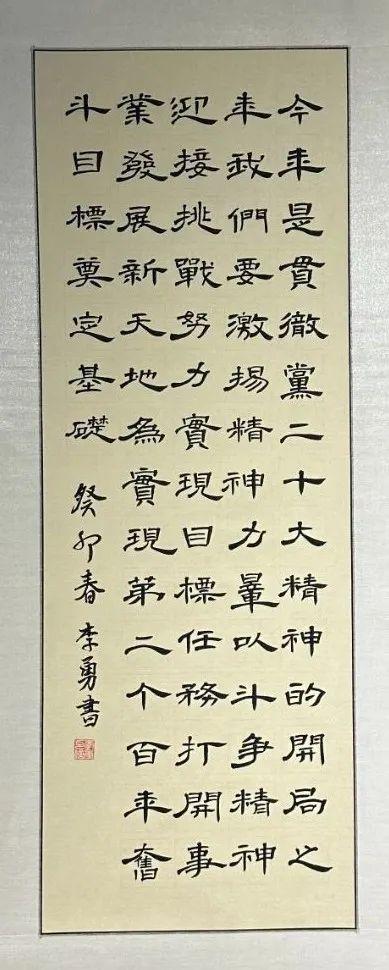 今年是貫徹黨二十大精神的開局之
年我們要激揚精神力量以斗争精神
迎接挑戰努力實現目標任務打開事
業發展新天地為實現第二个百年奮
斗目標奠定基礎
癸卯春李勇書